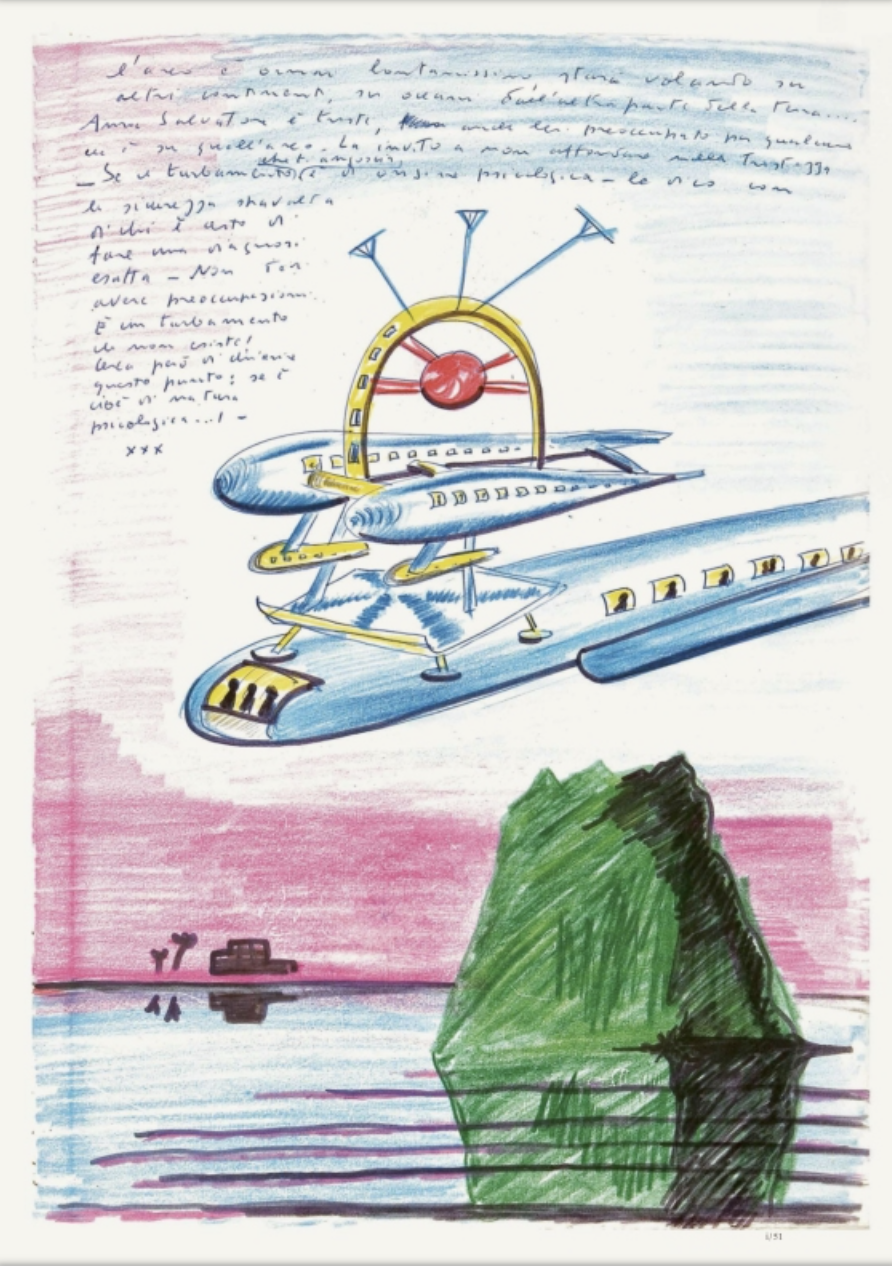 l'aereo è ormai lontanissimo starà volando su
altri continenti, su oceani dall'altra parte della terra....
Anna Salvatore è triste, anche lei preoccupata per qualcuno
che è su quell'aereo. La invito a non affondare nella tristezza
che t'angoscia,
— Se il turbamento è di origine psicologica — le dico con
la sicurezza stavolta
di chi è certo di
fare una diagnosi
esatta — Non devi
avere preoccupazioni.
È un turbamento
che non esiste!
Cerca però di chiarire
questo punto: se è
cioè di natura
psicologica...! —
xxx